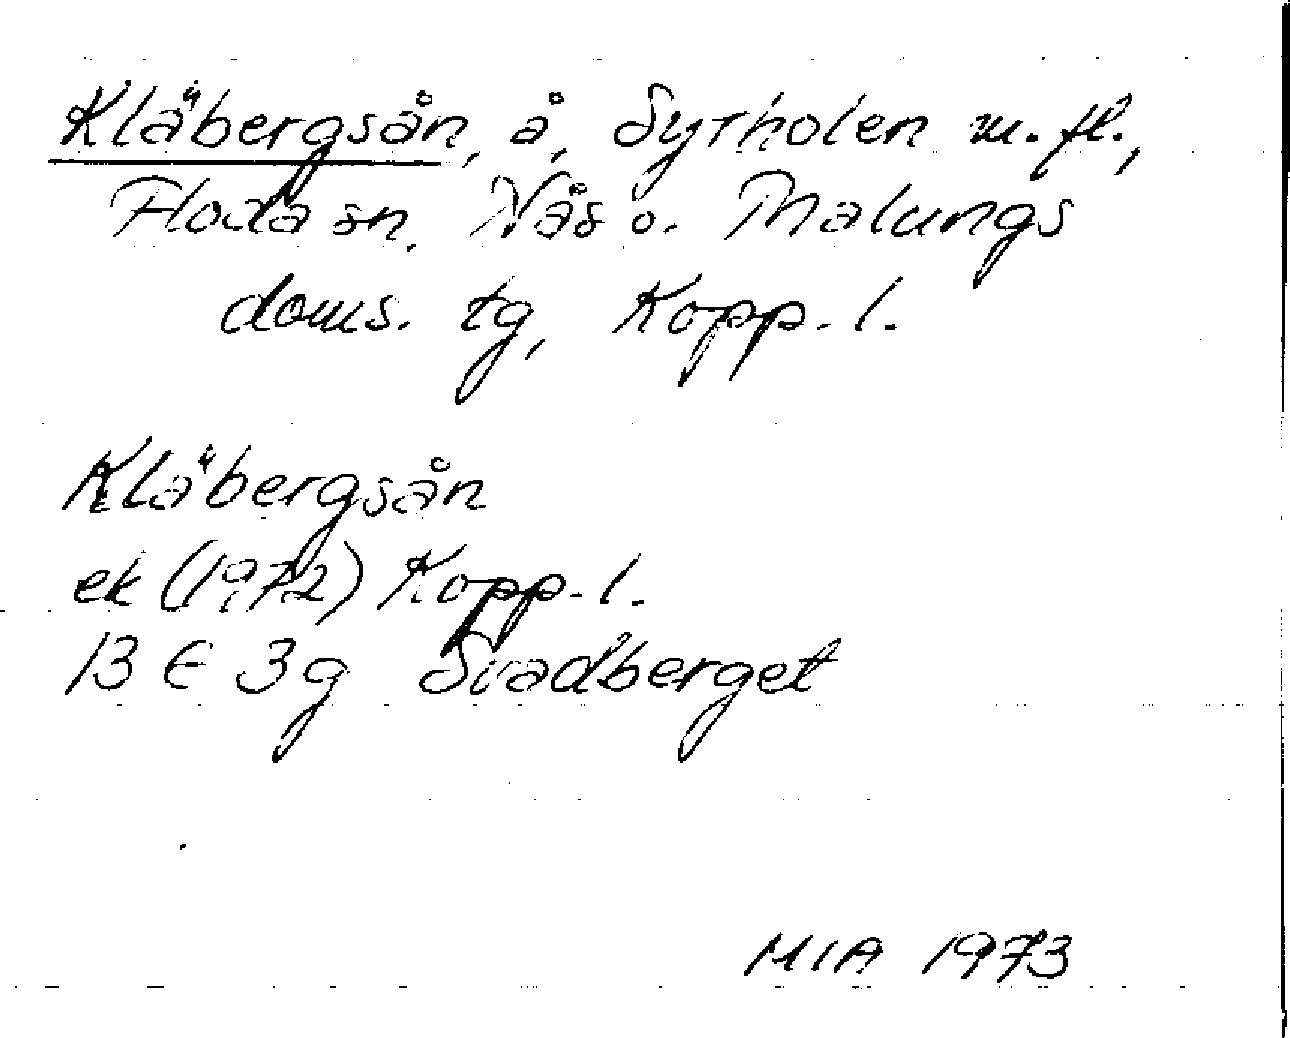 Kläbergsån, å, Syrholen m. fl.,
Floda sn. Nås o. Malungs
doms. tg, Kopp. l.
Kläbergsån
ek (1972) Kopp. l.
13 E 3g Svadberget
MIA 1973